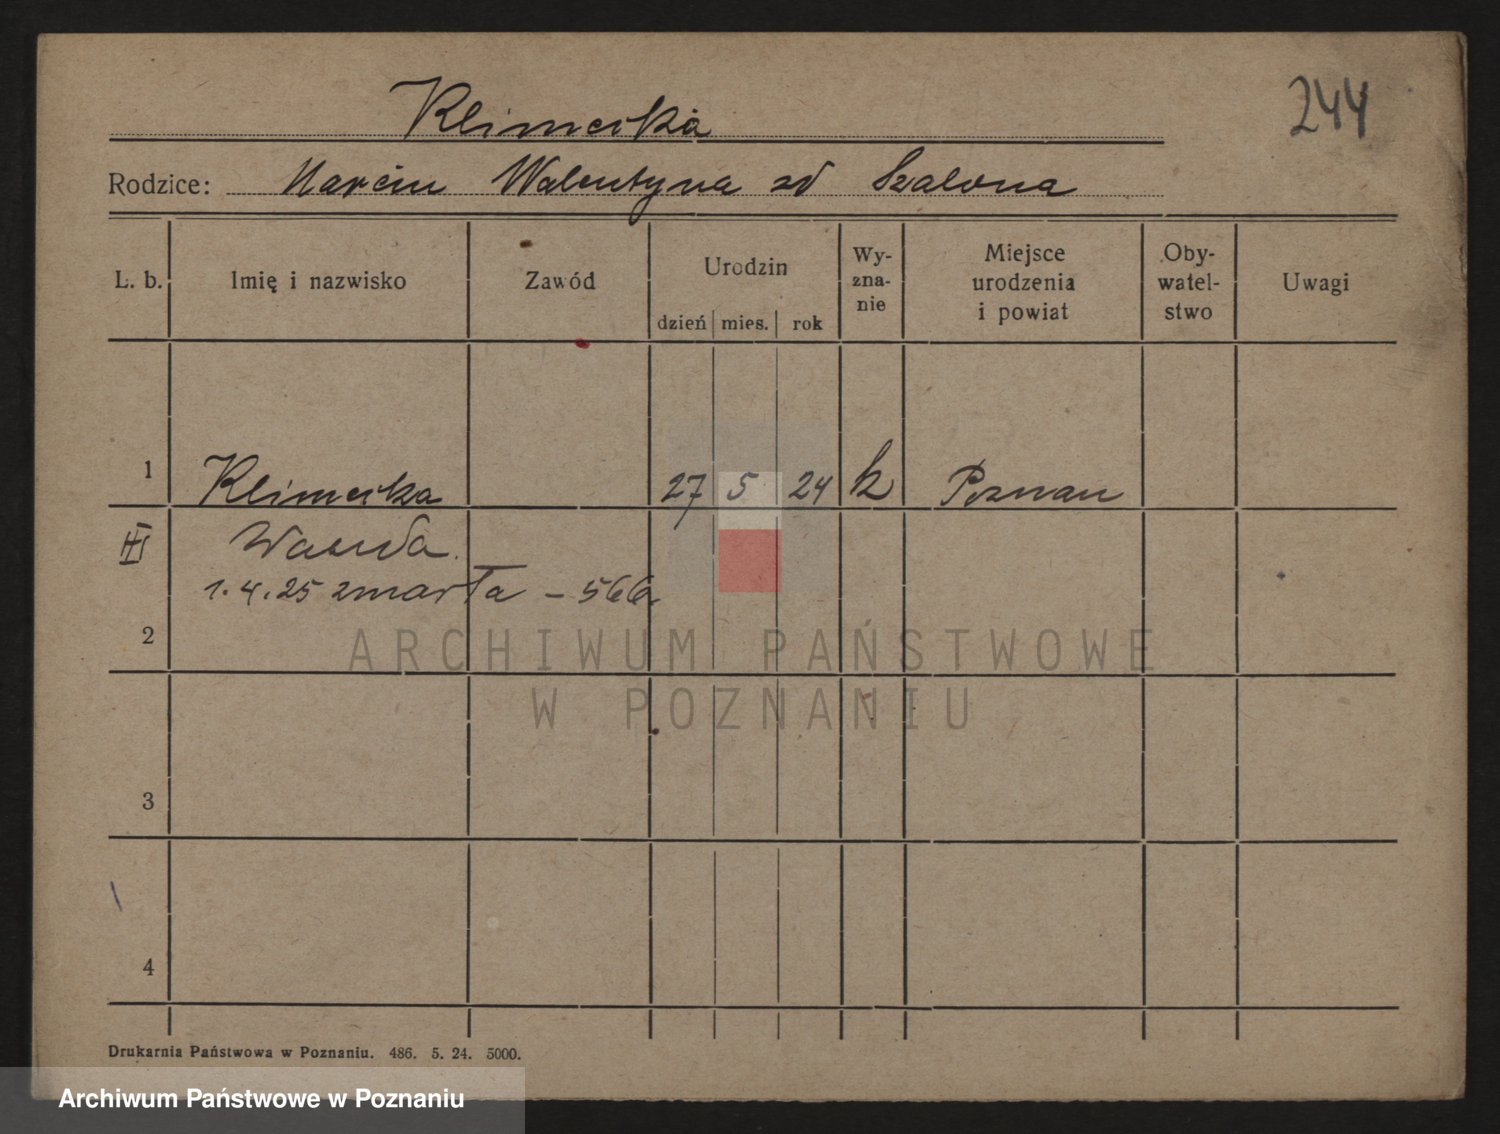 244
Klimecka
Rodzice: Marcin Walentyna zd Szalona
L. b. Imię i nazwisko Zawód Urodzin dzień mies. rok Wy-zna-nie Miejsce urodzenia i powiat Oby-watel-stwo Uwagi
1 Klimecka 27 5 24 k Poznan
III Wanda
1.4.25 zmarła - 566
2
ARCHIWUM PAŃSTWOWE
W POZNANIU
3
4
Drukarnia Państwowa w Poznaniu. 486. 5. 24. 5000.
Archiwum Państwowe w Poznaniu